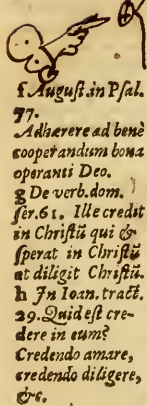 f August. in Psal.
77.
Adhærere ad benè
cooperandum bona
operanti Deo.
g De verb. dom.
ser. 61. Ille credit
in Christũ qui &
sperat in Christũ
et diligit Christũ.
h In Ioan. tract.
29. Quid est cre-
dere in eum?
Credendo amare,
credendo diligere,
&c.